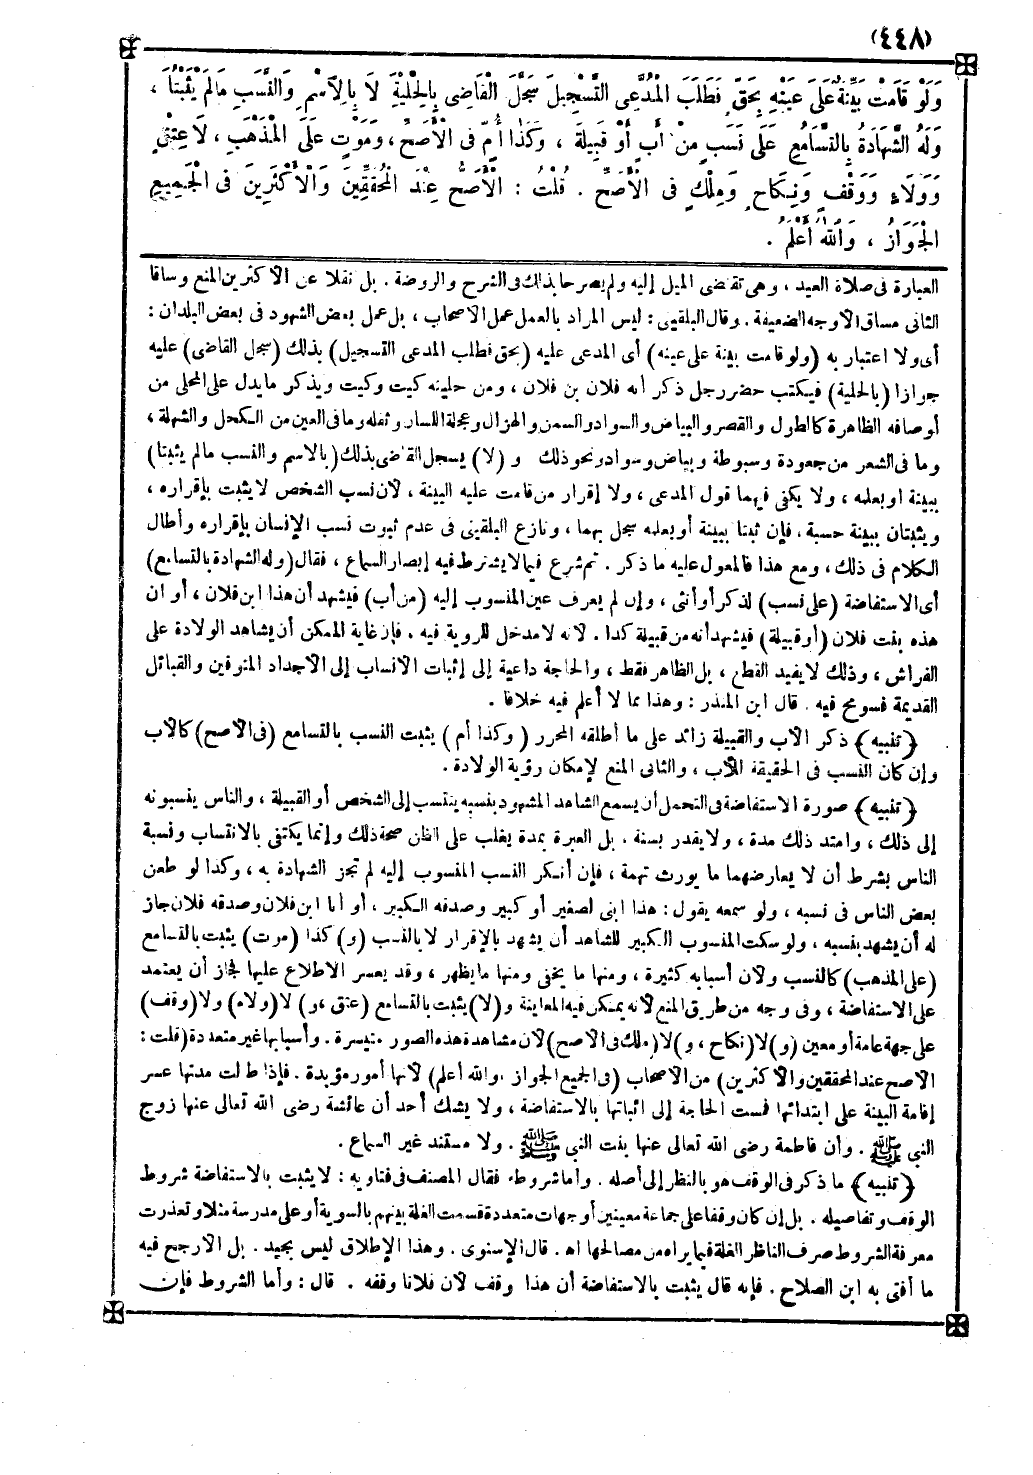 (٤٤٨)
وَلَوْ قَامَتْ بَيِّنَةٌ عَلَى عَيْنِهِ بِحَقٍّ فَطَلَبَ الْمُدَّعِي التَّسْجِيلَ سَجَّلَ الْقَاضِي بِالْحِلْيَةِ لَا بِالِاسْمِ وَالنَّسَبِ مَا لَمْ يَثْبُتَا ،
وَلَهُ الشَّهَادَةُ بِالتَّسَامُعِ عَلَى نَسَبٍ مِنْ أَبٍ أَوْ قَبِيلَةٍ ، وَكَذَا أُمٌّ فِي الْأَصَحِّ ، وَمَوْتٍ عَلَى الْمَذْهَبِ ، لَا عِتْقٍ
وَوَلَاءٍ وَوَقْفٍ وَنِكَاحٍ وَمِلْكٍ فِي الْأَصَحِّ . قُلْتُ : الْأَصَحُّ عِنْدَ الْمُحَقِّقِينَ وَالْأَكْثَرِينَ فِي الْجَمِيعِ
الْجَوَازُ ، وَاللهُ أَعْلَمُ .
العبارة فى صلاة العيد ، وهى تقتضى الميل إليه ولم يصرحا بذلك فى الشرح والروضة . بل نقلا عن الأكثرين المنع وساقا
الثانى مساق الأوجه الضعيفة . وقال البلقينى : ليس المراد بالعمل عمل الأصحاب ، بل عمل بعض الشهود فى بعض البلدان :
أى ولا اعتبار به (ولو قامت بينة على عينه) أى المدعى عليه (بحق فطلب المدعى التسجيل) بذلك (سجل القاضى) عليه
جوازا (بالحلية) فيكتب حضر رجل ذكر أنه فلان بن فلان ، ومن حليته كيت وكيت ويذكر ما يدل على المحلى من
أوصافه الظاهرة كالطول والقصر والبياض والسواد والسمن والهزال وعجلة اللسان وثقله وما فى العين من الكحل والشهلة ،
وما فى الشعر من جعودة وسبوطة وبياض وسواد ونحو ذلك و (لا) يسجل القاضى بذلك (بالاسم والنسب مالم يثبتا)
ببينة أو بعلمه ، ولا يكفى فيهما قول المدعى ، ولا إقرار من قامت عليه البينة ، لأن نسب الشخص لا يثبت بإقراره ،
ويثبتان ببينة حسبة ، فإن ثبتا ببينة أو بعلمه سجل بهما ، ونازع البلقينى فى عدم ثبوت نسب الإنسان بإقراره وأطال
الكلام فى ذلك ، ومع هذا فالمعول عليه ما ذكر . ثم شرع فيما لا يشترط فيه إبصار السماع ، فقال (وله الشهادة بالتسامع)
أى الاستفاضة (على نسب) لذكر أو أنثى ، وإن لم يعرف عين المنسوب إليه (من أب) فيشهد أن هذا ابن فلان ، أو أن
هذه بنت فلان (أو قبيلة) فيشهد أنه من قبيلة كذا . لأنه لا مدخل للرؤية فيه . فإن غاية الممكن أن يشاهد الولادة على
الفراش ، وذلك لا يفيد القطع ، بل الظاهر فقط ، والحاجة داعية إلى إثبات الأنساب إلى الأجداد المتوفين والقبائل
القديمة فسومح فيه . قال ابن المنذر : وهذا مما لا أعلم فيه خلافا .
﴿تنبيه﴾ ذكر الأب والقبيلة زائد على ما أطلقه المحرر ( وكذا أم ) يثبت النسب بالتسامع (فى الأصح) كالأب
وإن كان النسب فى الحقيقة للأب ، والثانى المنع لإمكان رؤية الولادة .
﴿تنبيه﴾ صورة الاستفاضة فى التحمل أن يسمع الشاهد المشهود بنسبه ينتسب إلى الشخص أو القبيلة ، والناس ينسبونه
إلى ذلك ، وامتد ذلك مدة ، ولا يقدر بسنة . بل العبرة بمدة يغلب على الظن صحة ذلك وإنما يكتفى بالانتساب ونسبة
الناس بشرط أن لا يعارضهما ما يورث تهمة ، فإن أنكر النسب المنسوب إليه لم تجز الشهادة به ، وكذا لو طعن
بعض الناس فى نسبه ، ولو سمعه يقول : هذا ابنى لصغير أو كبير وصدقه الكبير ، أو أنا ابن فلان وصدقه فلان جاز
له أن يشهد بنسبه ، ولو سكت المنسوب الكبير للشاهد أن يشهد بالإقرار لا بالنسب (و) كذا (موت) يثبت بالتسامع
(على المذهب) كالنسب ولأن أسبابه كثيرة ، ومنها ما يخفى ومنها ما يظهر ، وقد يعسر الاطلاع عليها فجاز أن يعتمد
على الاستفاضة ، وفى وجه من طريق المنع لأنه يمكن فيه المعاينة و (لا) يثبت بالتسامع (عتق ، و) لا (ولاء) ولا (وقف)
على جهة عامة أو معين (و) لا (نكاح ، و) لا (ملك فى الأصح) لأن مشاهدة هذه الصور متيسرة . وأسبابها غير متعددة (قلت :
الأصح عند المحققين والأكثرين) من الأصحاب (فى الجميع الجواز ، والله أعلم) لأنها أمور مؤبدة . فإذا طالت مدتها عسر
إقامة البينة على ابتدائها فمست الحاجة إلى اثباتها بالاستفاضة ، ولا يشك أحد أن عائشة رضى الله تعالى عنها زوج
النبى ﷺ . وأن فاطمة رضى الله تعالى عنها بنت النبى ﷺ . ولا مستند غير السماع .
﴿تنبيه﴾ ما ذكر فى الوقف هو بالنظر إلى أصله . وأما شروطه فقال المصنف فى فتاويه : لا يثبت بالاستفاضة شروط
الوقف وتفاصيله . بل إن كان وقفا على جماعة معينين أو جهات متعددة قسمت الغلة بينهم بالسوية أو على مدرسة مثلا وتعذرت
معرفة الشروط صرف الناظر الغلة فيما يراه من مصالحها اه . قال الإسنوى . وهذا الإطلاق ليس بجيد . بل الأرجح فيه
ما أفتى به ابن الصلاح . فإنه قال يثبت بالاستفاضة أن هذا وقف لأن فلانا وقفه . قال : وأما الشروط فإن